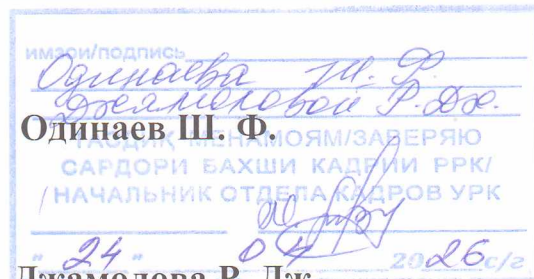 имзои/подпись
Одинаева Ш. Ф.
Джамоловой Р. Дж.
Одинаев Ш. Ф.
ТАСДИҚ МЕНАМОЯМ/ЗАВЕРЯЮ
САРДОРИ БАХШИ КАДРИИ РРК/
НАЧАЛЬНИК ОТДЕЛА КАДРОВ УРК
"24" 04 2026 с/г
Джамолова Р. Дж.